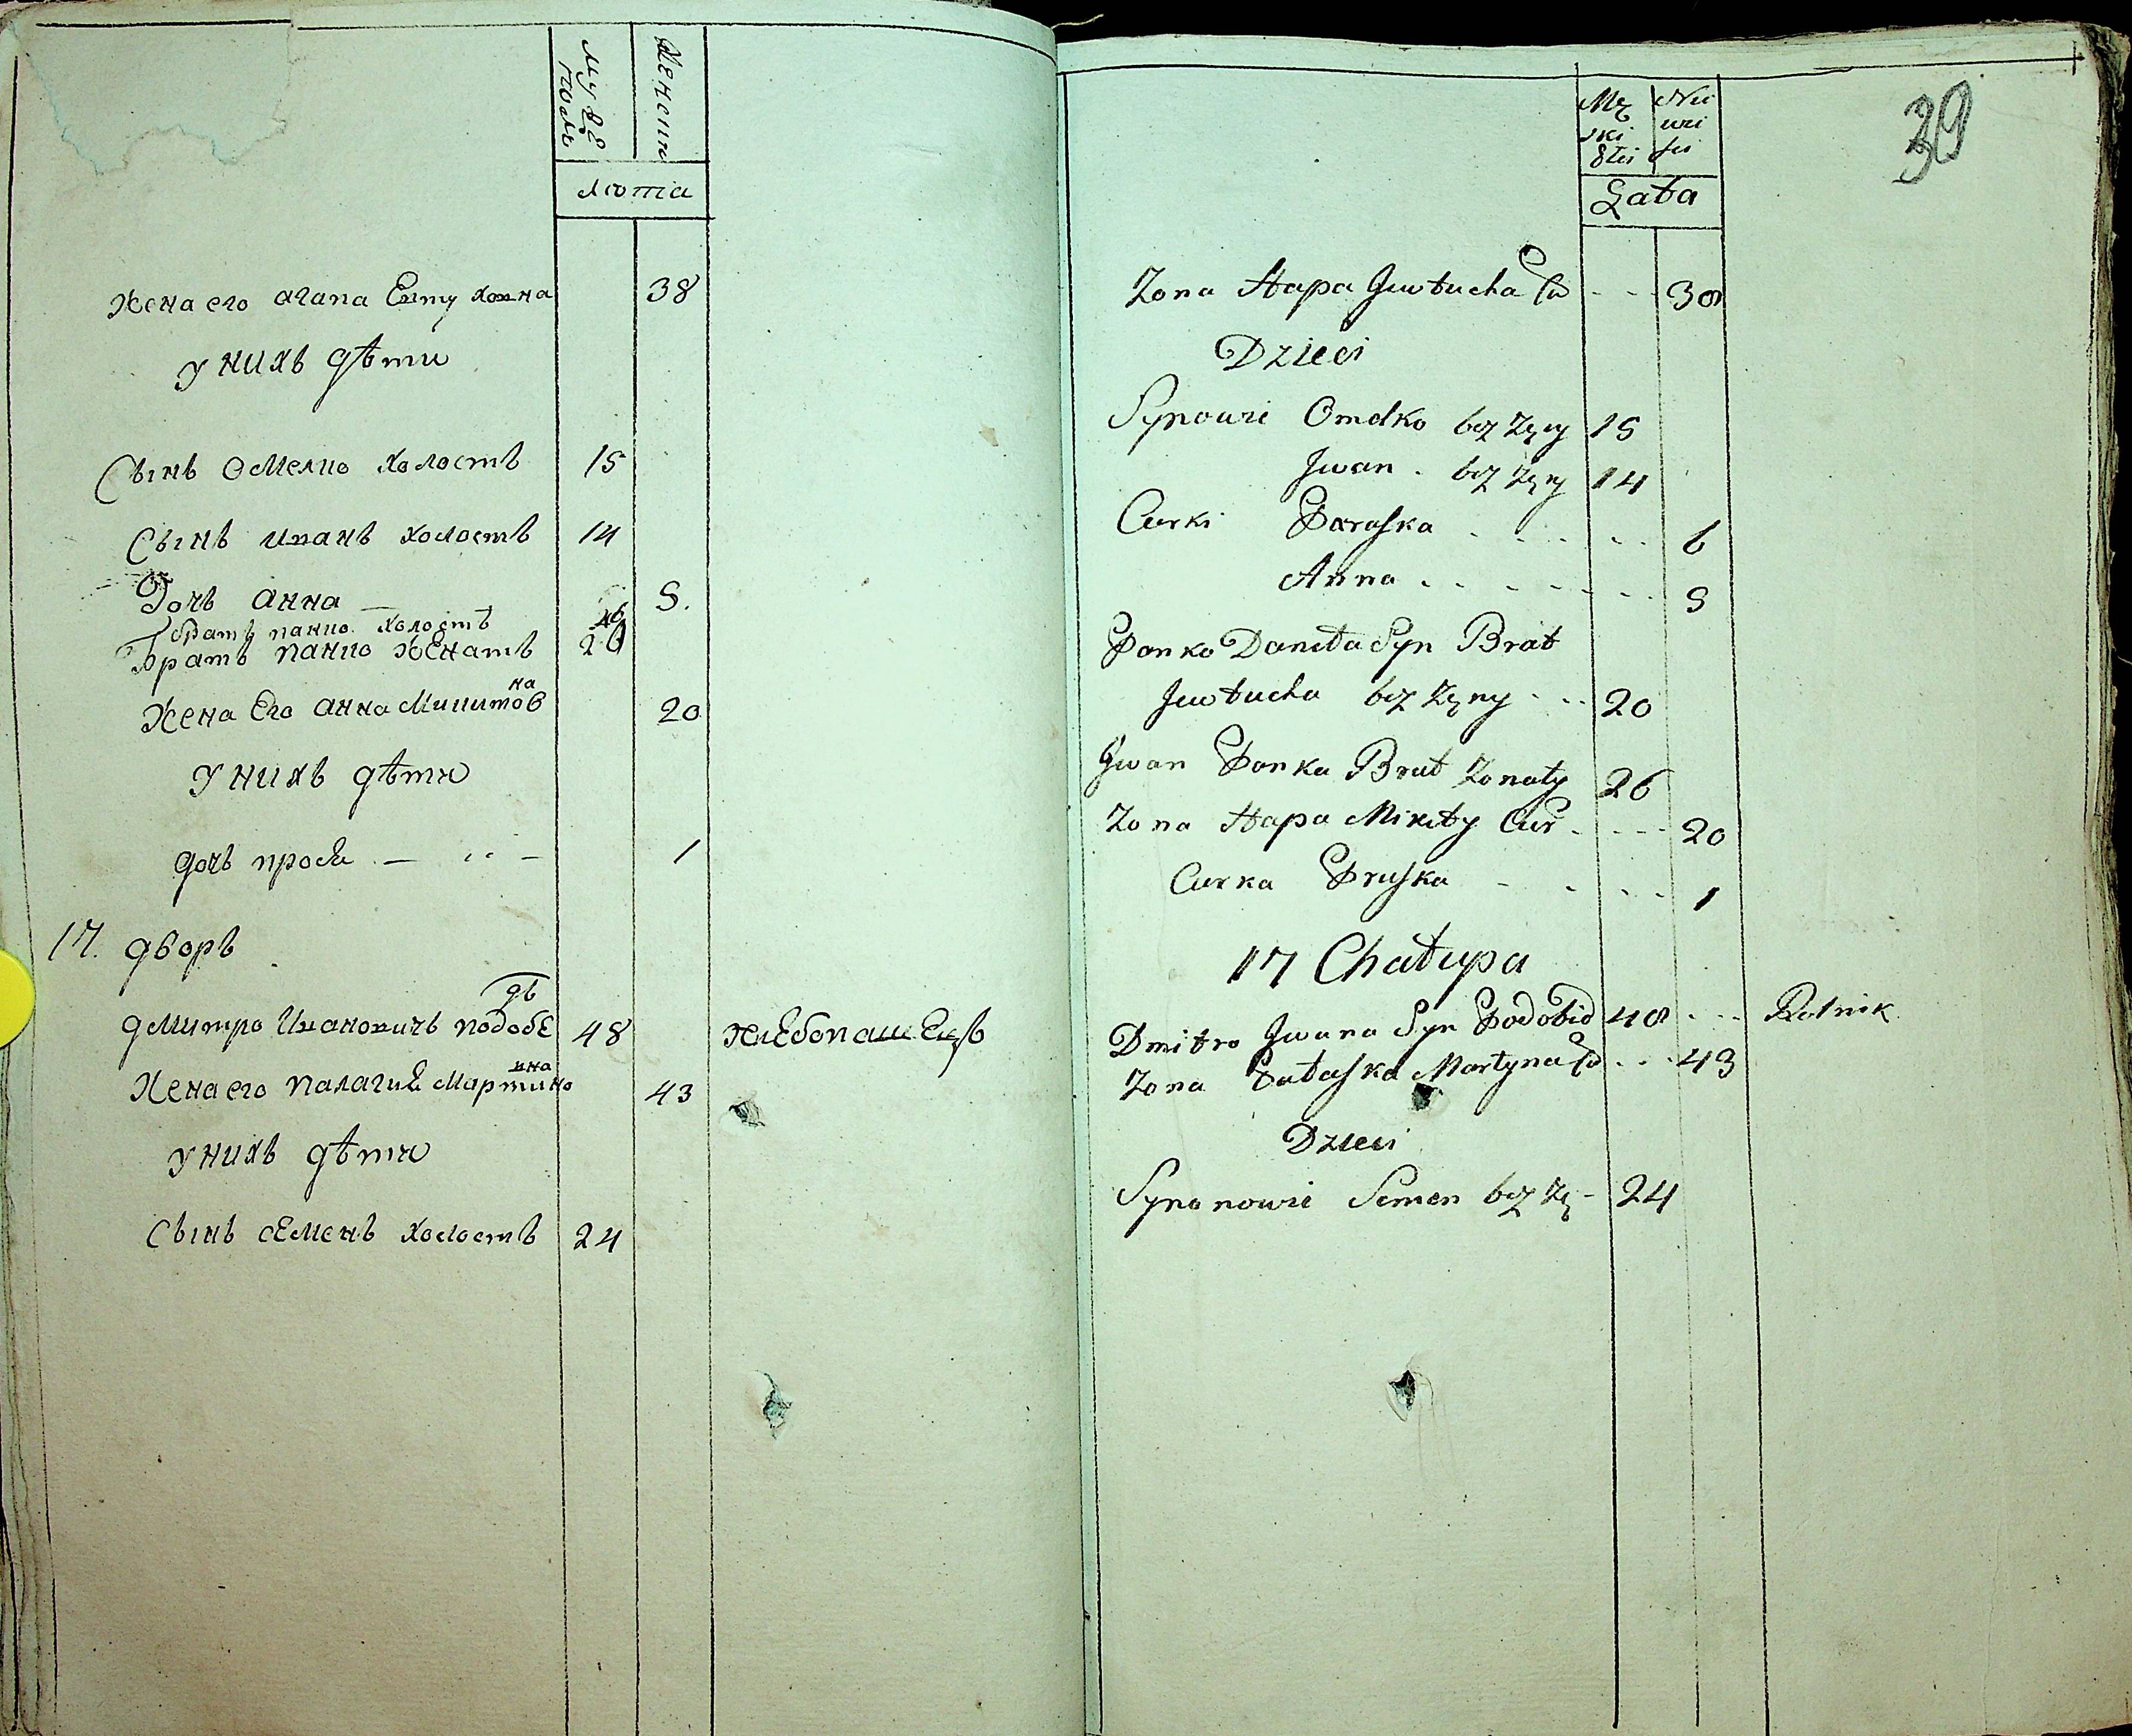 мужеска
женски
лѣта
жена его агапа Евтуховна 38
у нихъ дѣти
Сынъ омелко холостъ 15
Сынъ иванъ холостъ 14
Дочь анна 5.
братъ панко холостъ
братъ панко женатъ 26
жена Его анна Микитовна 20
у нихъ дѣти
дочь прося 1
17. дворъ
дмитро Ивановичъ подобѣдъ 48 хлебопашецъ
жена его палагия Мартинина 43
у нихъ дѣти
Сынъ семенъ холостъ 24
39
Lata
Zona Hapa Jewtucha Cu 38
Dzieci
Synowie Omelko bez Zęny 15
Jwan bez Zęny 14
Curki Paraska 6
Anna 5
Panko Daniła Syn Brat
Jewtucha bez Zęny 20
Jwan Panka Brat Zonaty 26
Zona Hapa Mikity Cur 20
Curka Pruska 1
17 Chałupa
Dmitro Jwana Syn Podobid 48 Rolnik
Zona Pałaska Martyna Cu 43
Dzieci
Synonowie Semen bez Zę 24